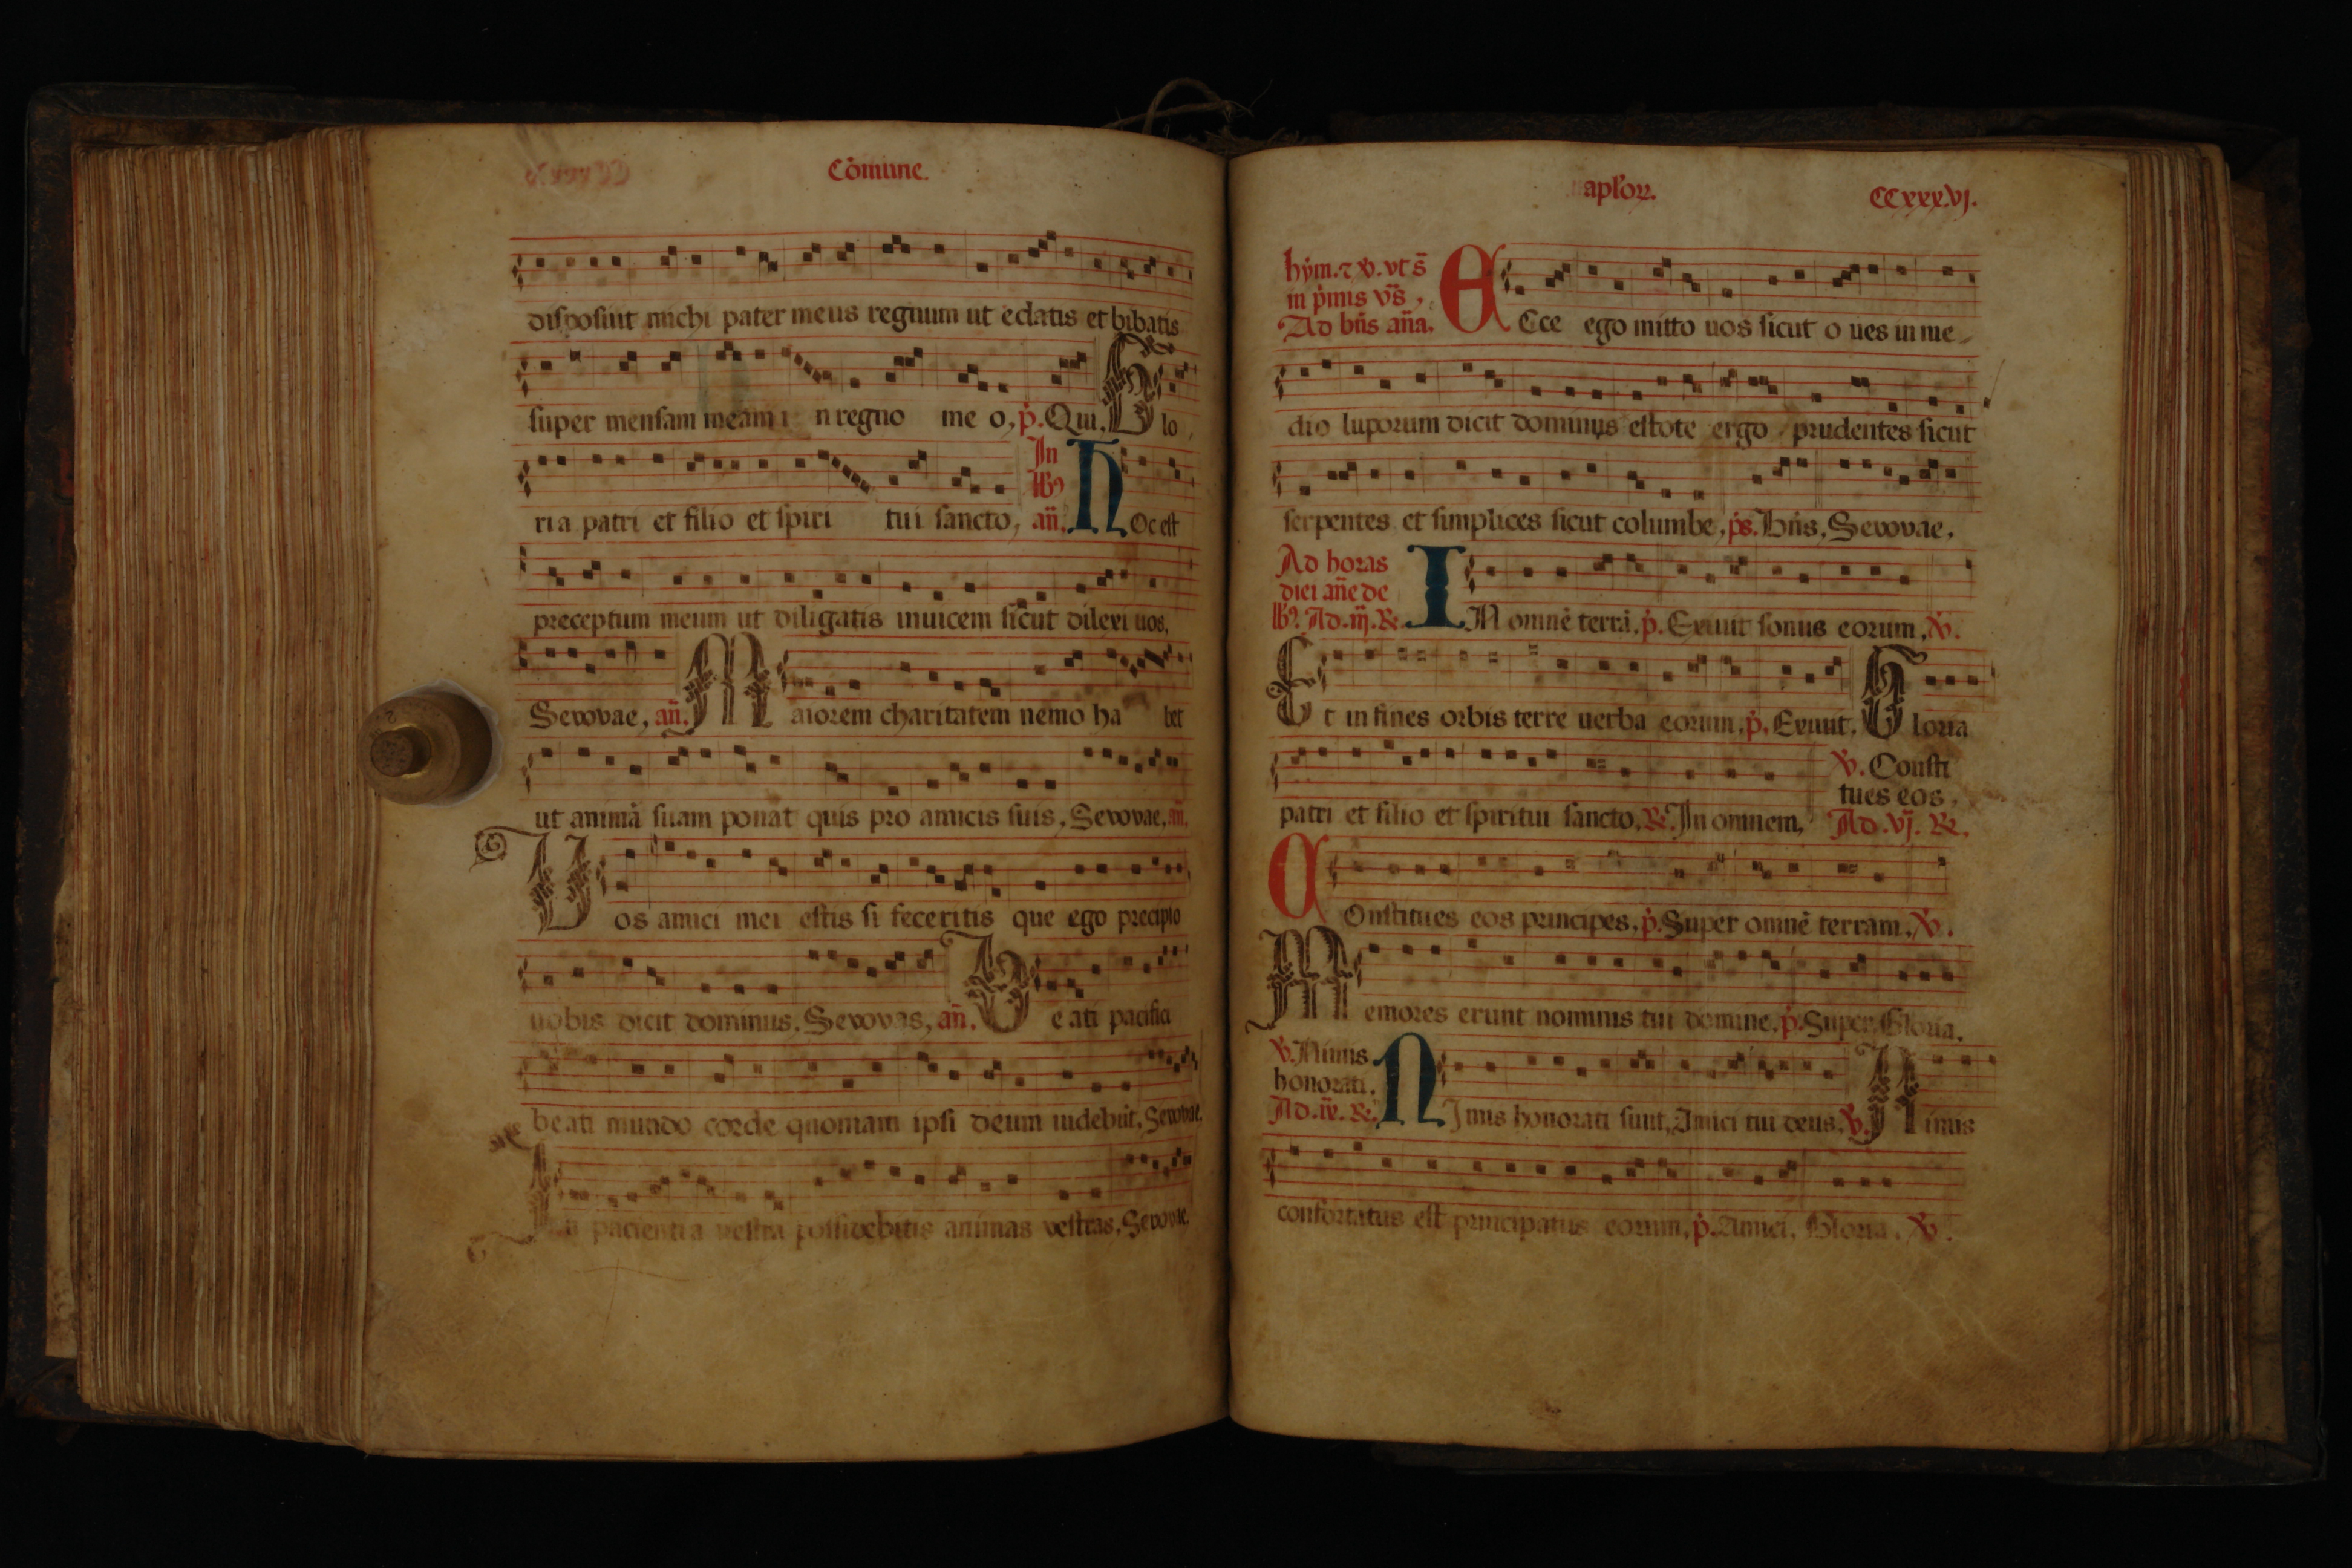 Cõmune.
disposuit michi pater meus regnum ut edatis et bibatis
super mensam meam i n regno me o, p̾. Qui, Glo
ria patri et filio et spiri tui sancto,
In
lb9
añ. Hoc est
preceptum meum ut diligatis inuicem sicut dilexi uos,
Sevovae, añ. Maiorem charitatem nemo ha bet
ut animã suam ponat quis pro amicis suis, Sevovae, añ.
Vos amici mei estis si feceritis que ego precipio
uobis dicit dominus, Sevovae, añ. Beati pacifici
beati mundo corde quoniam ipsi deum uidebũt, Sevovae.
In pacientia vestra possidebitis animas vestras, Sevovae.
aplor̃. CCxxxvj.
hỹm. ⁊ v̾. vt s̃
in p̾mis vs̃,
Ad bñs aña.
Ecce ego mitto uos sicut o ues in me
dio luporum dicit dominus estote ergo prudentes sicut
serpentes et simplices sicut columbe, ps. Bñs, Sevovae,
Ad horas
diei añe de
lb9. Ad .iij. R̃.
IN omnẽ terrã. p̾. Exiuit sonus eorum, v̾.
Et in fines orbis terre uerba eorum, p̾. Exiuit. Gloria
patri et filio et spiritui sancto, R̃. In omnem,
v̾. Consti
tues eos,
Ad .vj. R̃.
Constitues eos principes, p̾. Super omnẽ terram, v̾.
Memores erunt nominis tui domine, p̾. Super, Gloria.
v̾. Nimis
honorati,
Ad .ix. R̃.
Nimis honorati sunt, Amici tui deus. v̾. Nimis
confortatus est principatus eorum, p̾. Amici, Gloria. v̾.